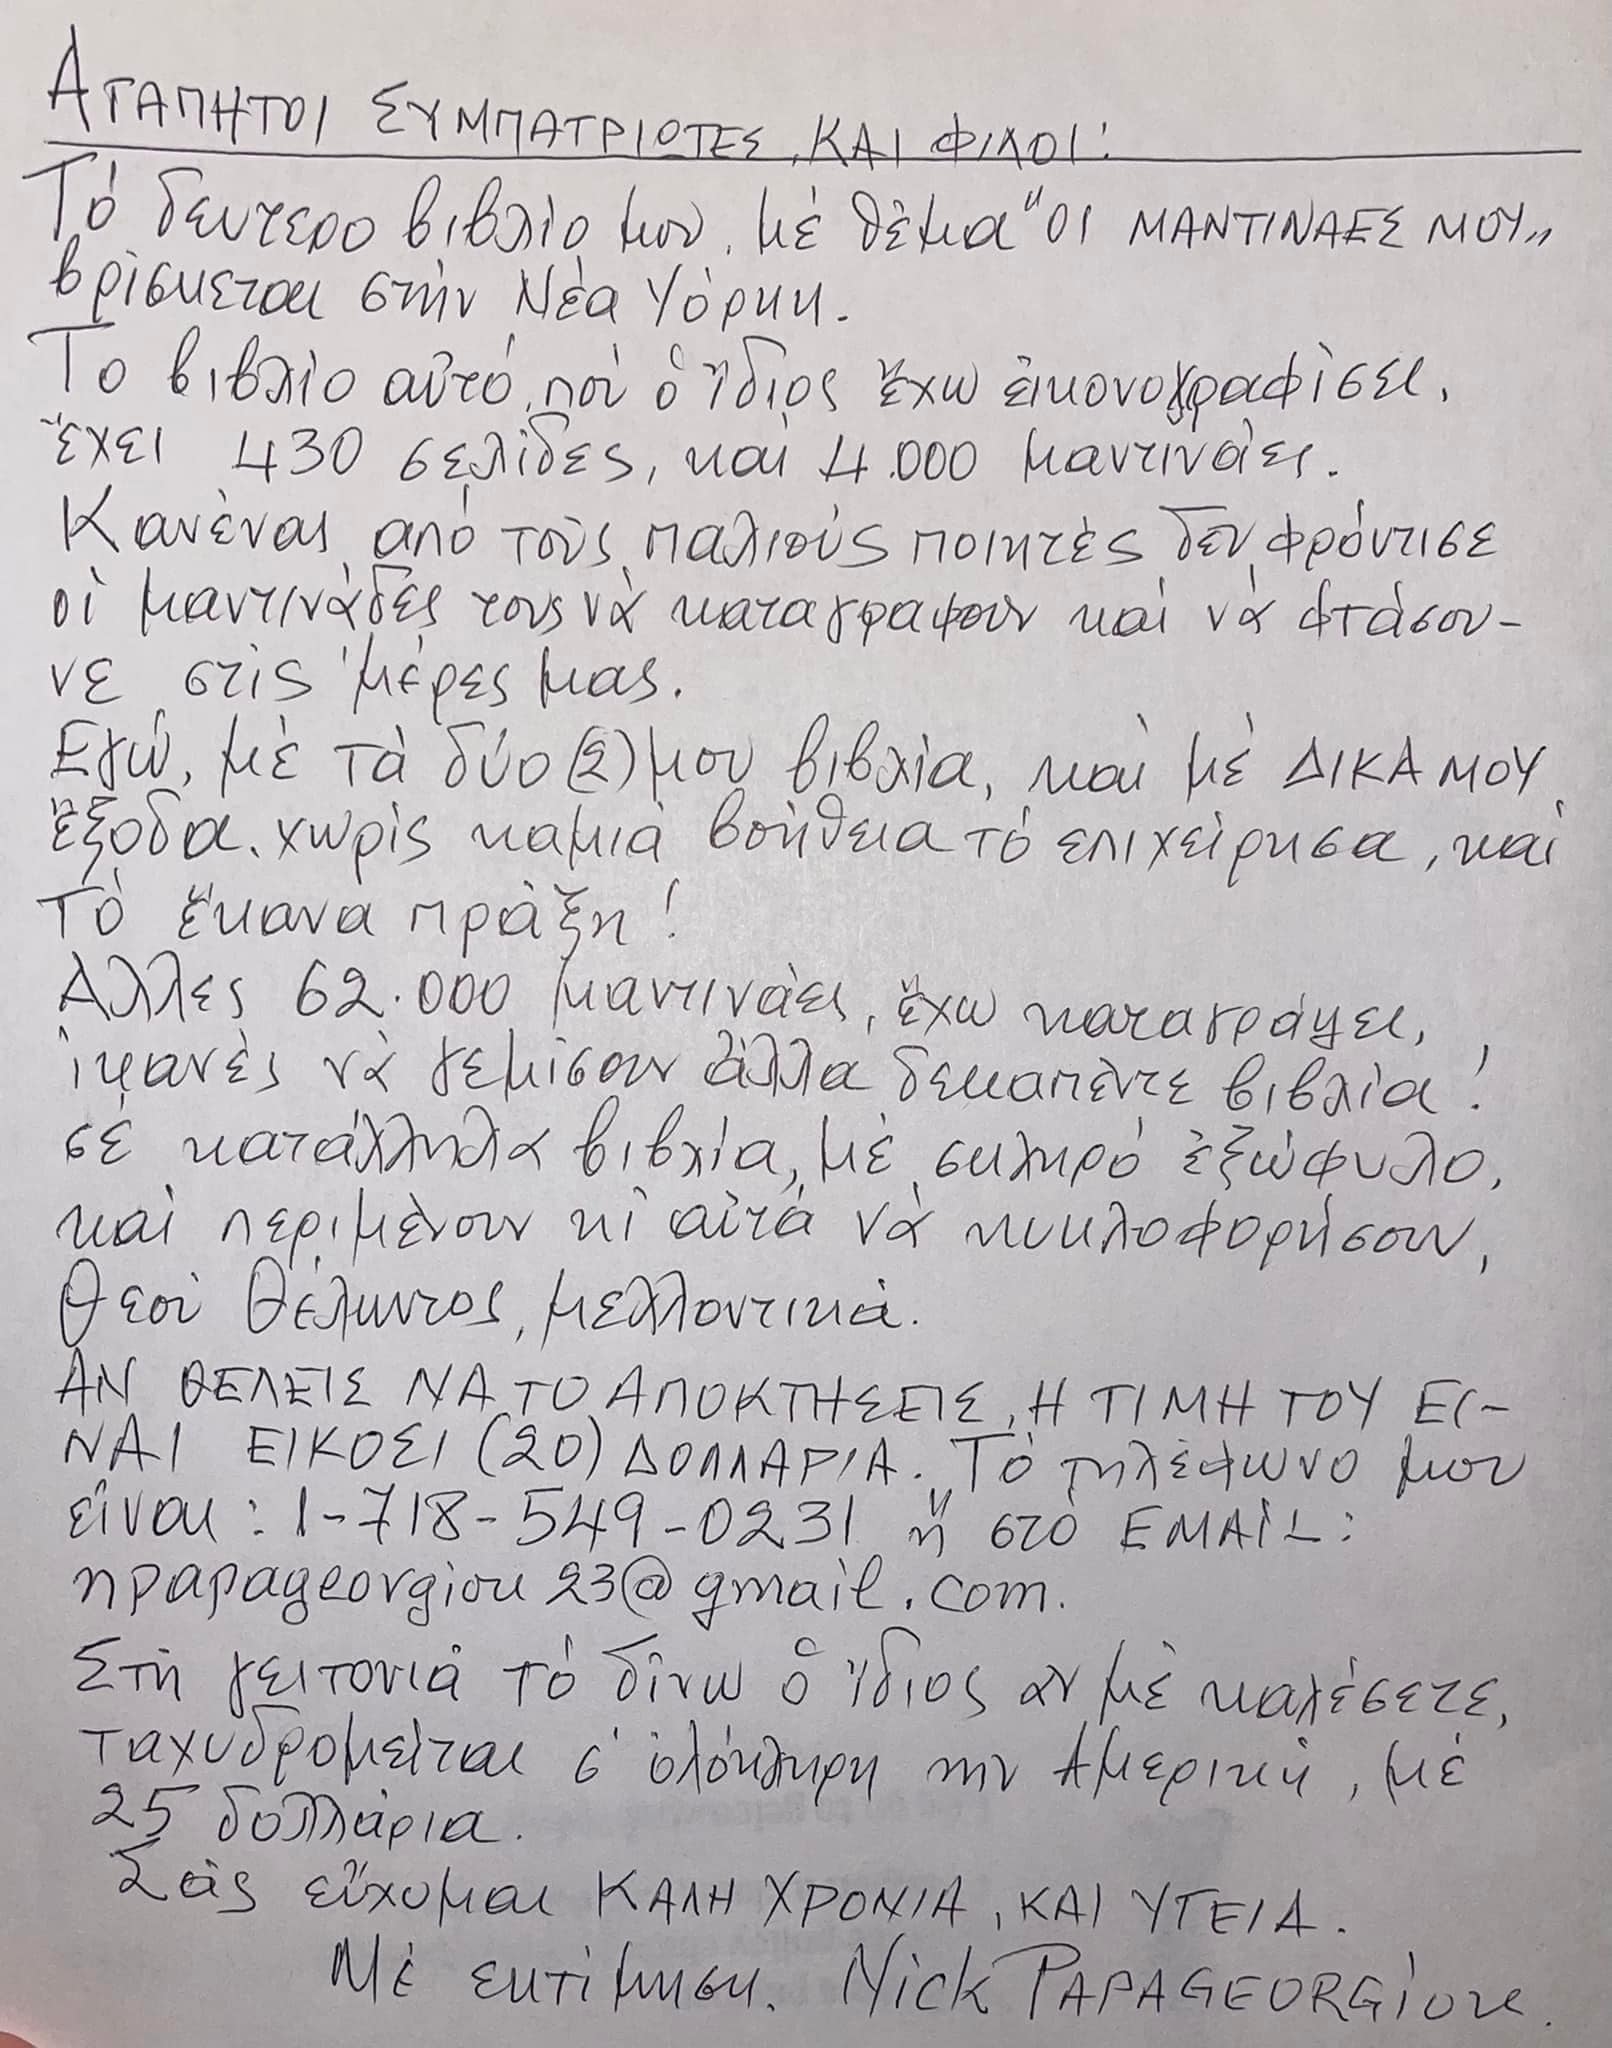 ΑΓΑΠΗΤΟΙ ΣΥΜΠΑΤΡΙΩΤΕΣ, ΚΑΙ ΦΙΛΟΙ:
Τό δευτερο βιβλίο μου, μέ θέμα "ΟΙ ΜΑΝΤΙΝΑΕΣ ΜΟΥ"
βρίσκεται στήν Νέα Υόρκη.
Το βιβλίο αὐτό, πού ὁ ἴδιος ἔχω ἐικονογραφίσει,
ἔχει 430 σελίδες, καί 4.000 μαντινάες.
Κανένας από τούς παλιούς ποιητές δεν φρόντισε
οἱ μαντινάδες τους νά καταγραφουν καί νά φτάσου-
νε στίς μέρες μας.
Εγώ, μέ τά δύο (2) μου βιβλία, καί μέ ΔΙΚΑ ΜΟΥ
ἔξοδα, χωρίς καμιά βοήθεια τό επιχείρησα, καί
τό ἔκανα πράξη!
Αλλες 62.000 μαντινάες, ἔχω καταγράψει,
ἱκανές νά γεμίσουν ἄλλα δεκαπέντε βιβλία!
σέ κατάλληλα βιβλία, μέ σκληρό ἐξώφυλο,
καί περιμένουν κι αὐτά νά κυκλοφορήσουν,
Θεοῦ θέλωντος, μελλοντικά.
ΑΝ ΘΕΛΕΙΣ ΝΑ ΤΟ ΑΠΟΚΤΗΣΕΙΣ, Η ΤΙΜΗ ΤΟΥ ΕΙ-
ΝΑΙ ΕΙΚΟΣΙ (20) ΔΟΛΛΑΡΙΑ. Τό τηλέφωνο μου
εἶναι: 1-718-549-0231 ἤ στό EMAIL:
npapageorgiou23@gmail.com.
Στή γειτονιά τό δίνω ὁ ἴδιος αν μέ καλέσετε,
ταχυδρομεῖται σ' ὁλόκληρη την Αμερική, μέ
25 δολλάρια.
Σάς εὔχομαι ΚΑΛΗ ΧΡΟΝΙΑ, ΚΑΙ ΥΓΕΙΑ.
Μέ εκτίμηση. Nick PAPAGEORGiou.